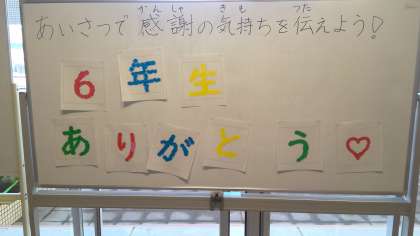 あいさつで感謝の気持ちを伝えよう!
かんしゃ きも つた
6年生
ありがとう♡